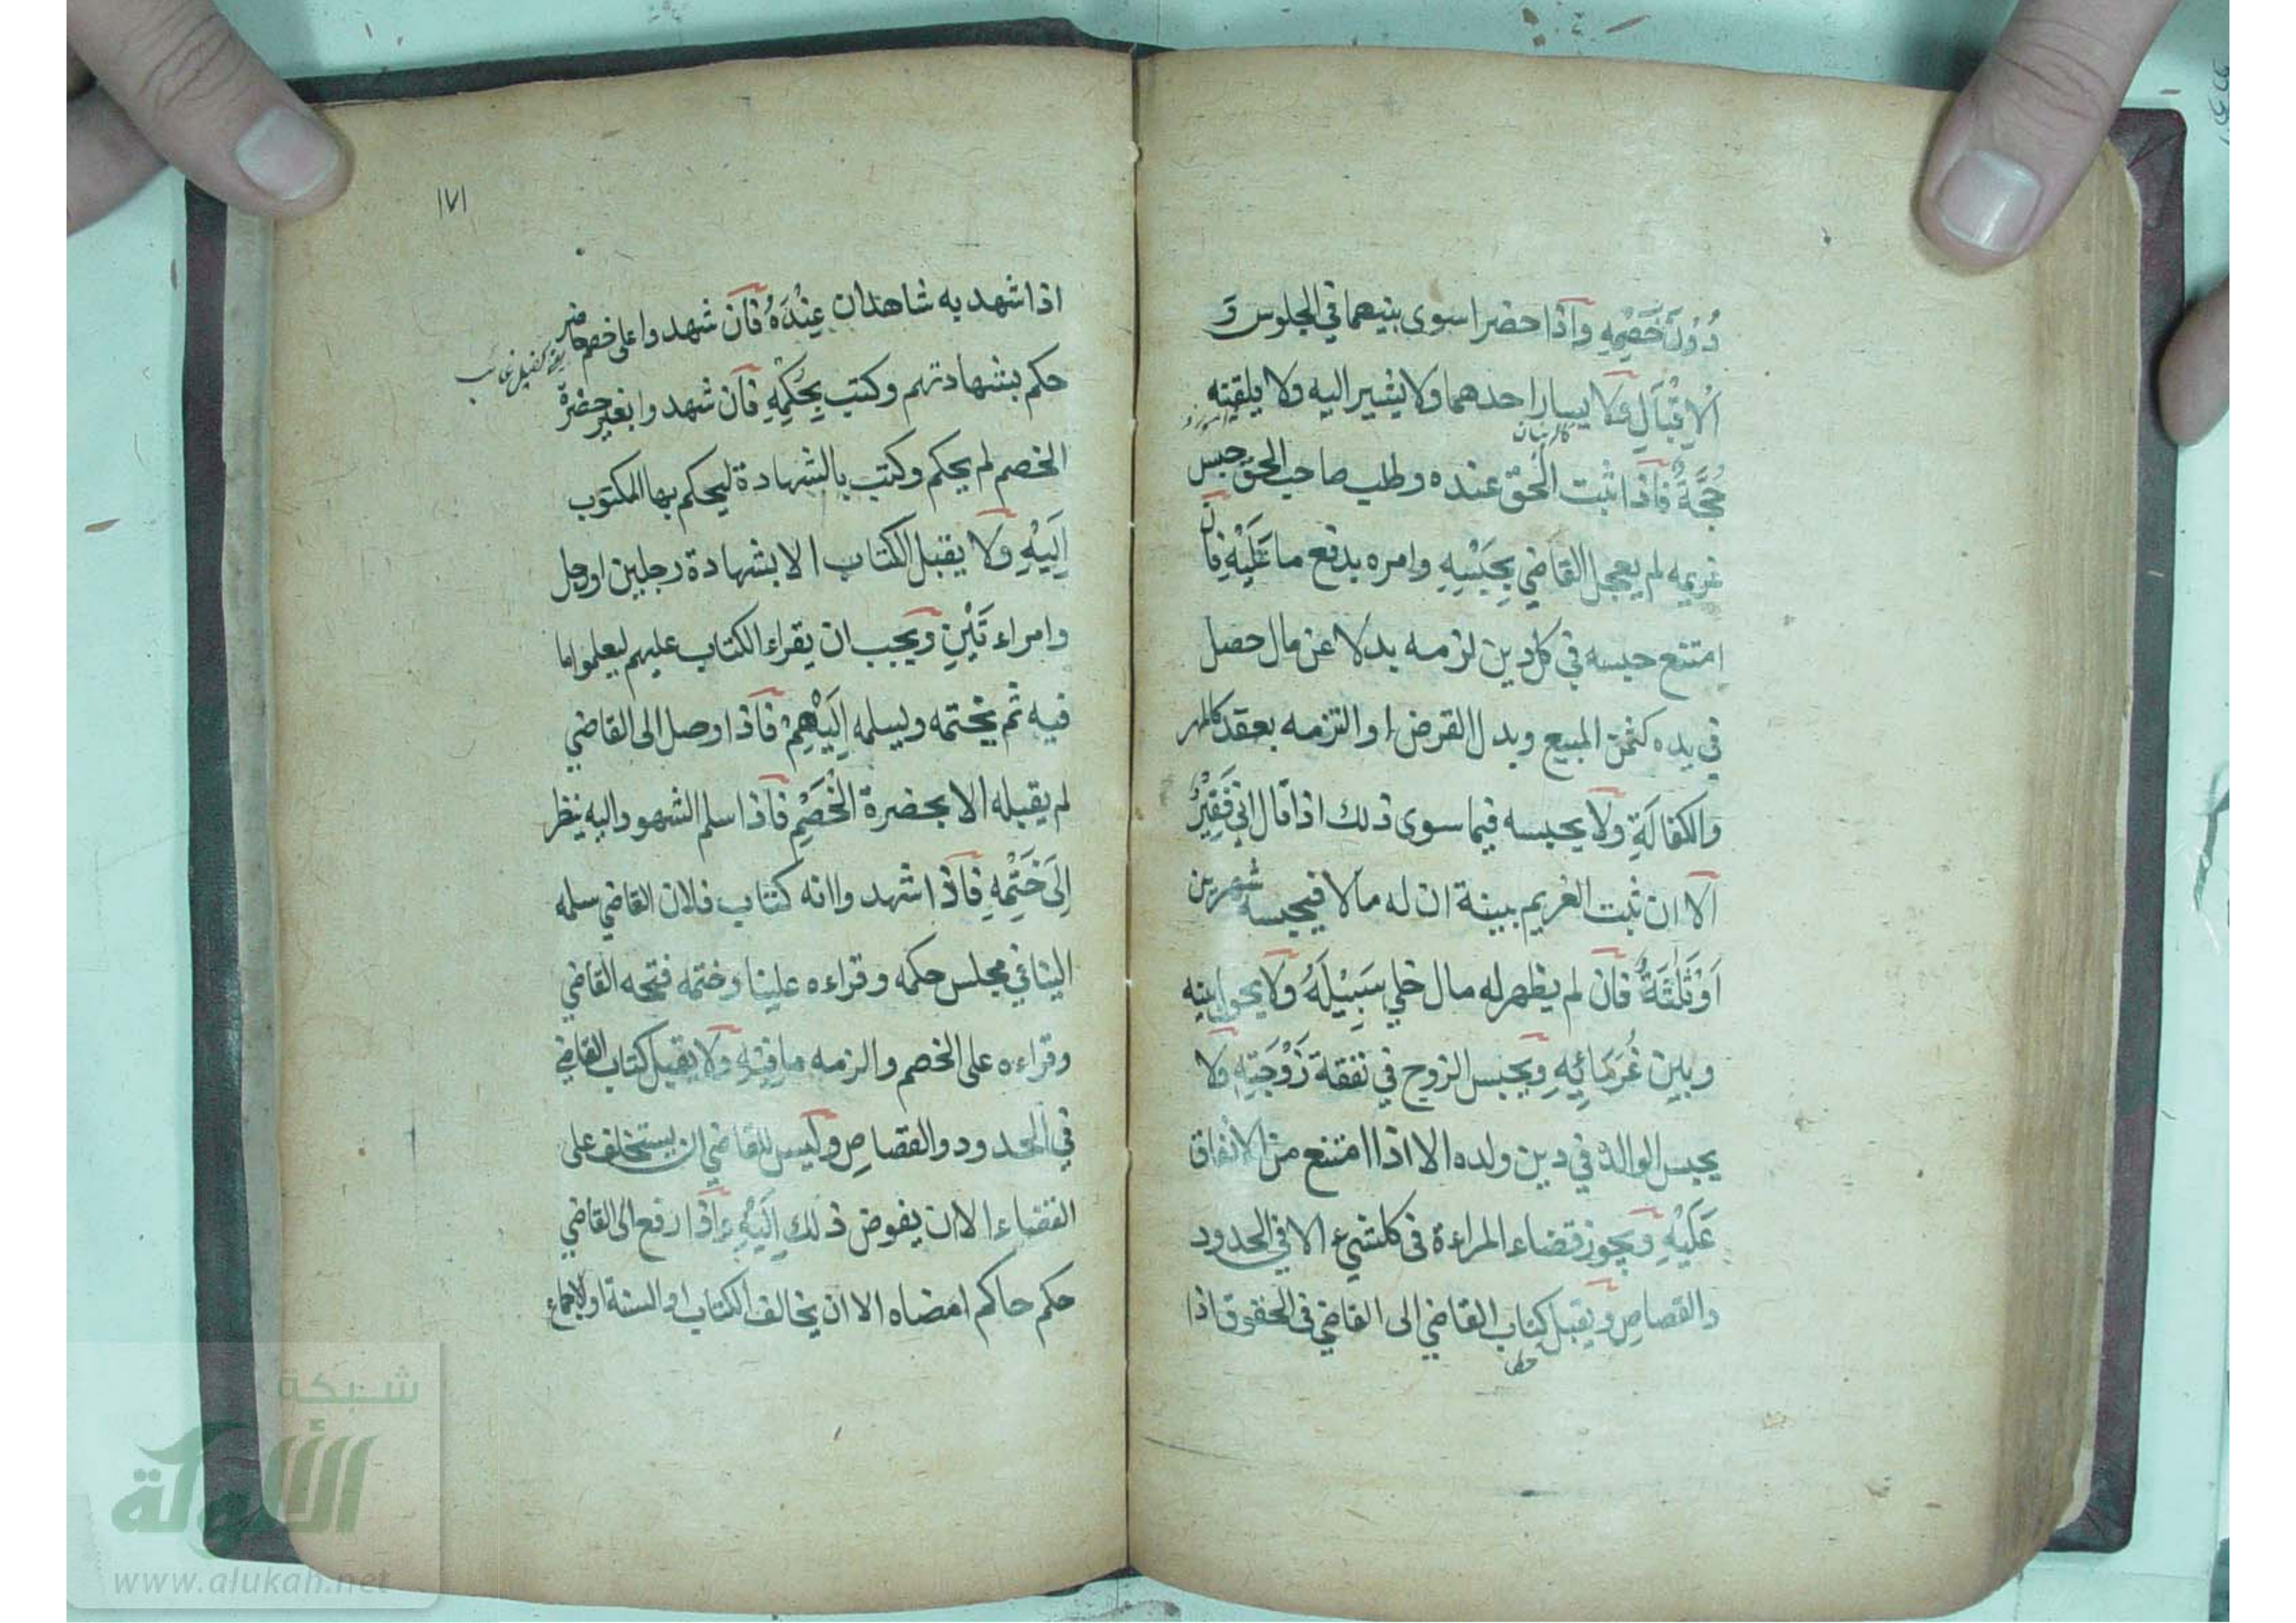 دُوْنَ خَصْمِهِ وَاذا حضرا سوى بينهما في الجلوس وَ
اَلاِقْبَالِ وَلا يسار احدهما ولا يشير اليه ولا يلقنه
حُجَّةً فَاذا ثبت الحق عنده وطلب صاحب الحق حبس
غريمه لم يعجل القاضي بِحَبْسِهِ وامره بدفع ما عَلَيْهِ فان
امتنع حبسه في كل دين لزمه بدلا عن مال حصل
في يده كثمن المبيع وبدل القرض او التزمه بعقد كالمهر
والكفالَةِ وَلا يحبسه فيما سوى ذلك اذا قال اني فَقِيْرٌ
اَلا ان ثبت الغريم ببينة ان له مالا فيحبسه شهرين
اَوْ ثَلٰثَةً فَان لم يظهر له مال خلي سَبِيْلَهُ وَلا يحول بينه
وبين غُرَمَائِهِ وَيحبس الزوج في نفقة زَوْجَتِهِ وَلا
يحبس الوالد في دين ولده الا اذا امتنع من الانفاق
عَلَيْهِ وَيجوز قضاء المراءة في كلشيء الا في الحدود
والقصاصِ وَيقبل كتاب القاضي الى القاضي في الحقوق اذا
١٧١
اذا شهد به شاهدان عِنْدَهُ فَان شهدوا على خصم حاضر
حكم بشهادتهم وكتب بِحُكْمِهِ فَان شهدوا بغير حضرة
الخصم لم يحكم وكتب بالشهادة ليحكم بها المكتوب
اِلَيْهِ وَلا يقبل الكتاب الا بشهادة رجلين او رجل
وامراءتَيْنِ وَيجب ان يقراء الكتاب عليهم ليعلموا ما
فيه ثم يختمه ويسلمه اِلَيْهِمْ فَاذا وصل الى القاضي
لم يقبله الا بحضرة الخَصْمِ فَاذا سلم الشهود اليه ينظر
اِلَى خَتْمِهِ فَاذا شهدوا انه كتاب فلان القاضي سلمه
الينا في مجلس حكمه وقراءه علينا وختمه فتحه القاضي
وقراءه على الخصم والزمه ما فِيْهِ وَلا يقبل كتاب القاضي
في الحدود والقصاصِ وَليس للقاضي ان يستخلف على
القضاء الا ان يفوض ذلك اِلَيْهِ وَاذا رفع الى القاضي
حكم حاكم امضاه الا ان يخالف الكتاب او السنة او الاجماع
شبكة
الألوكة
www.alukah.net